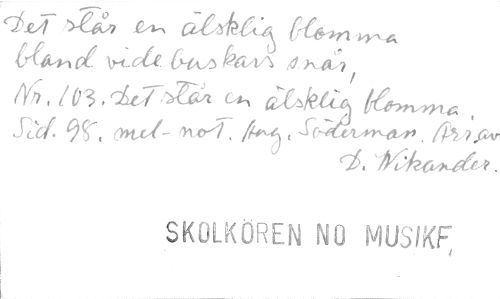 Det står en älsklig blomma
bland videbuskars snår,
Nr. 103. Det står en älsklig blomma.
Sid. 98. mel-not. Aug. Söderman. Arr. av
D. Wikander.
SKOLKÖREN NO MUSIKF,